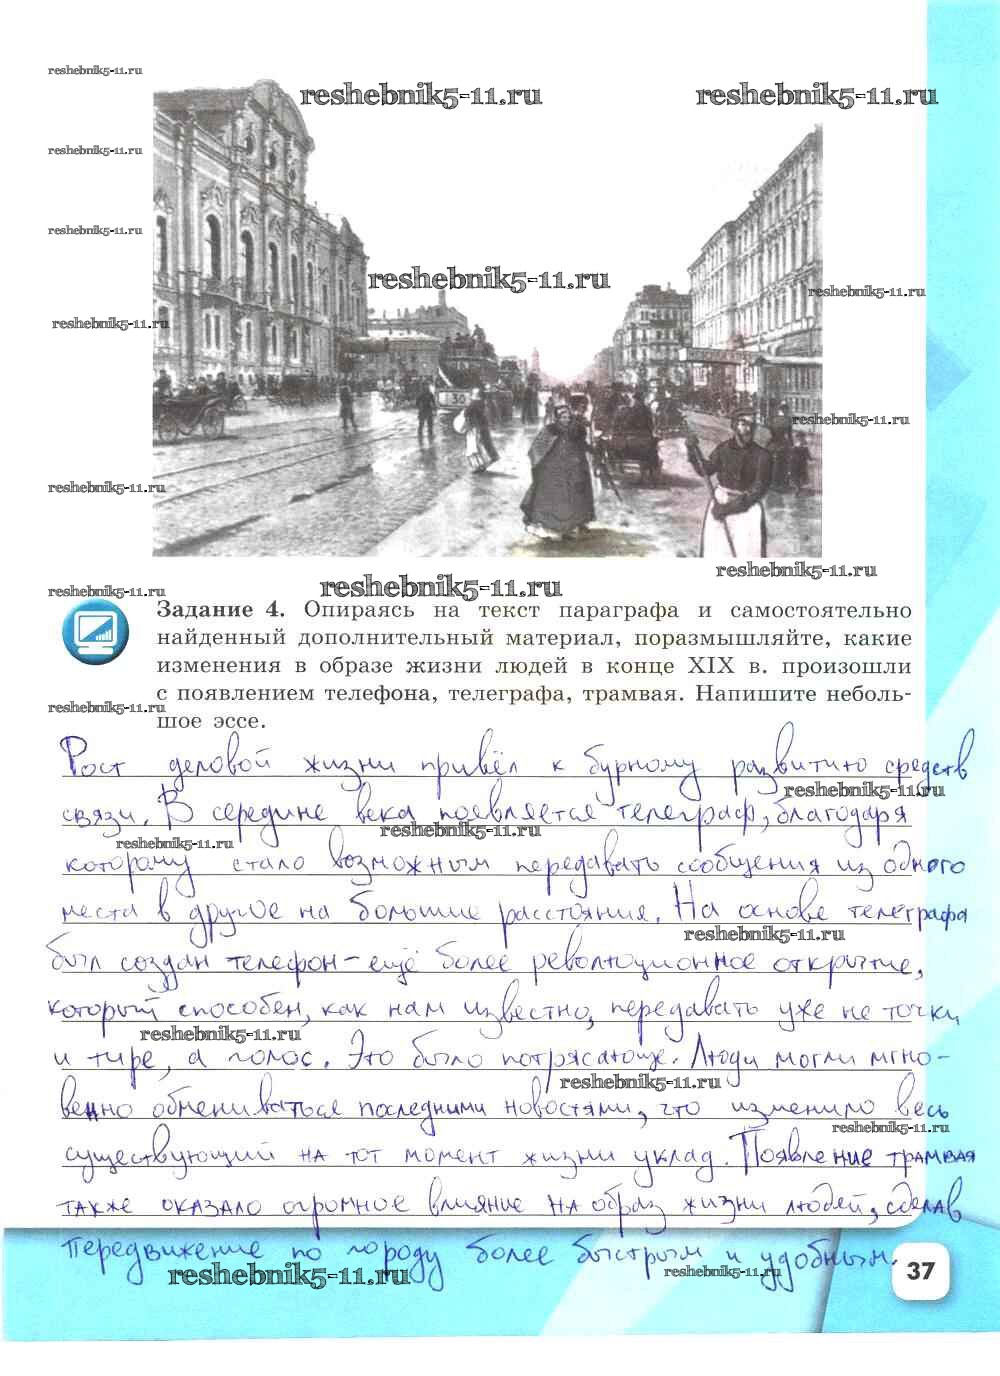 reshebnik5-11.ru
reshebnik5-11.ru reshebnik5-11.ru
reshebnik5-11.ru
reshebnik5-11.ru
reshebnik5-11.ru
reshebnik5-11.ru
reshebnik5-11.ru
30
reshebnik5-11.ru
reshebnik5-11.ru
reshebnik5-11.ru
reshebnik5-11.ru
reshebnik5-11.ru
Задание 4. Опираясь на текст параграфа и самостоятельно
найденный дополнительный материал, поразмышляйте, какие
изменения в образе жизни людей в конце XIX в. произошли
с появлением телефона, телеграфа, трамвая. Напишите неболь-
reshebnik5-11.ru
шое эссе.
Рост деловой жизни привёл к бурному развитию средств
reshebnik5-11.ru
связи. В середине века появляется телеграф, благодаря
reshebnik5-11.ru
reshebnik5-11.ru
которому стало возможным передавать сообщения из одного
места в другое на большие расстояния. На основе телеграфа
reshebnik5-11.ru
был создан телефон – ещё более революционное открытие,
который способен, как нам известно, передавать уже не точки
reshebnik5-11.ru
и тире, а голос. Это было потрясающе. Люди могли мгно-
reshebnik5-11.ru
венно обмениваться последними новостями, что изменило весь
reshebnik5-11.ru
существующий на тот момент жизни уклад. Появление трамвая
также оказало огромное влияние на образ жизни людей, сделав
передвижение по городу более быстрым и удобным.
reshebnik5-11.ru reshebnik5-11.ru
37